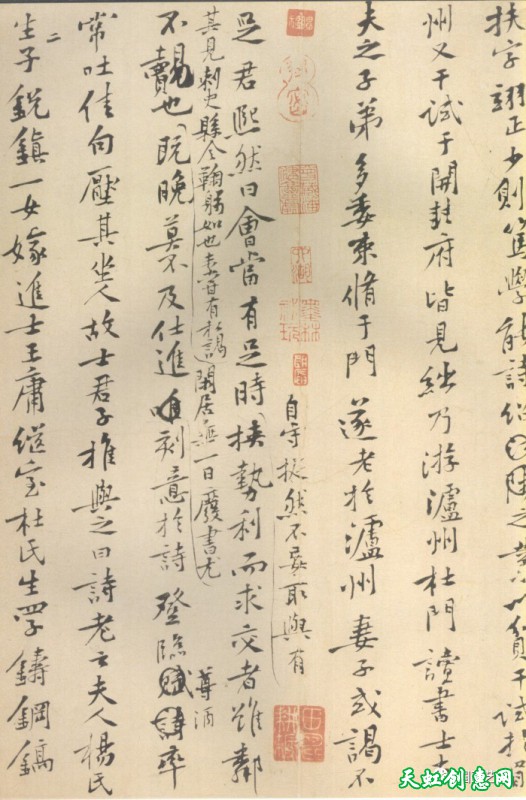 扶字翊正少則篤學能詩
州又干試于開封府皆見絀乃游瀘州杜門讀書士大
夫之子弟多委束脩于門遂老於瀘州妻子或謁不
自守挺然不妄取與有
足君熙然曰會當有足時挾勢利而求交者雖鄰
其見刺史縣令鞠躬如也未嘗有私謁閒居無一日廢書尤
不覿也既晚莫不及仕進唯刻意於詩登臨賦詩率
尊酒
常吐佳句壓其坐人故士君子推與之曰詩老云夫人楊氏
二
生子銳鎮一女嫁進士王庸繼室杜氏生四子鑄鋼鎬
天虹创意网